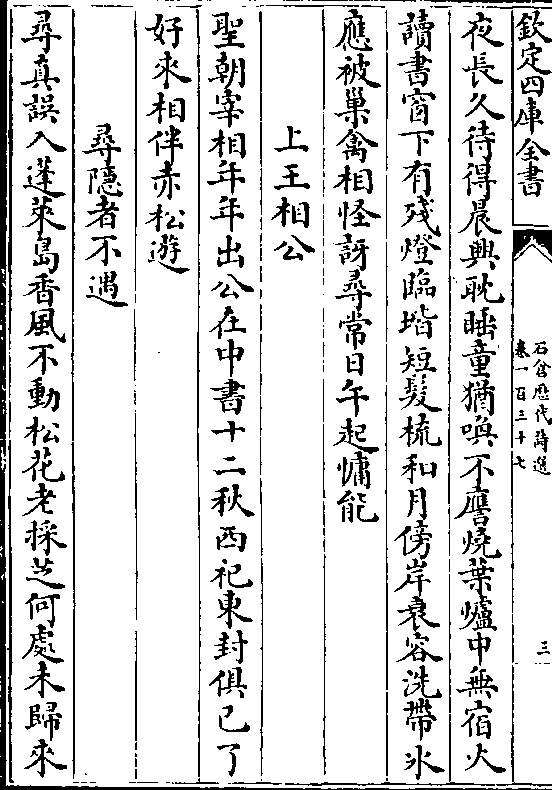 欽定四庫全書
石倉歷代詩選
卷一百三十七
三
夜長久待得晨興耽睡童猶喚不譍燒葉爐中無宿火
讀書窗下有殘燈臨堦短髮梳和月傍岸衰容洗帶氷
應被巢禽相怪訝尋常日午起慵能
上王相公
聖朝宰相年年出公在中書十二秋西祀東封俱已了
好來相伴赤松遊
尋隱者不遇
尋真誤入蓬萊島香風不動松花老採芝何處未歸來